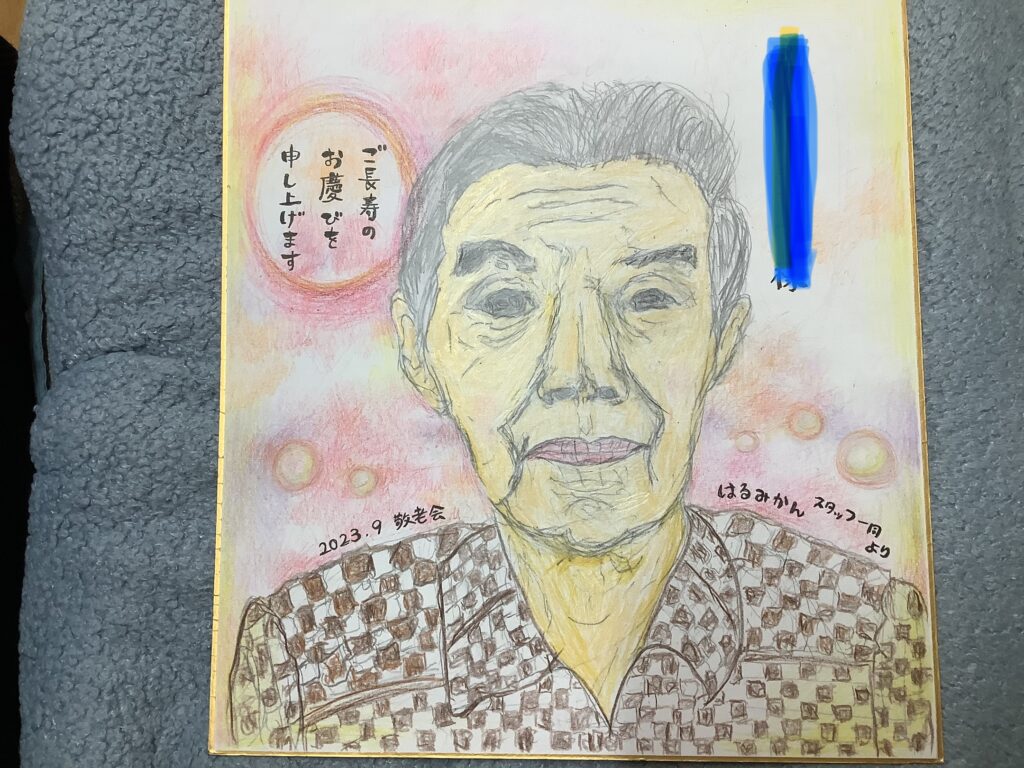 ご長寿の
お慶びを
申し上げます
2023.9 敬老会
はるみかん スタッフ一同
より